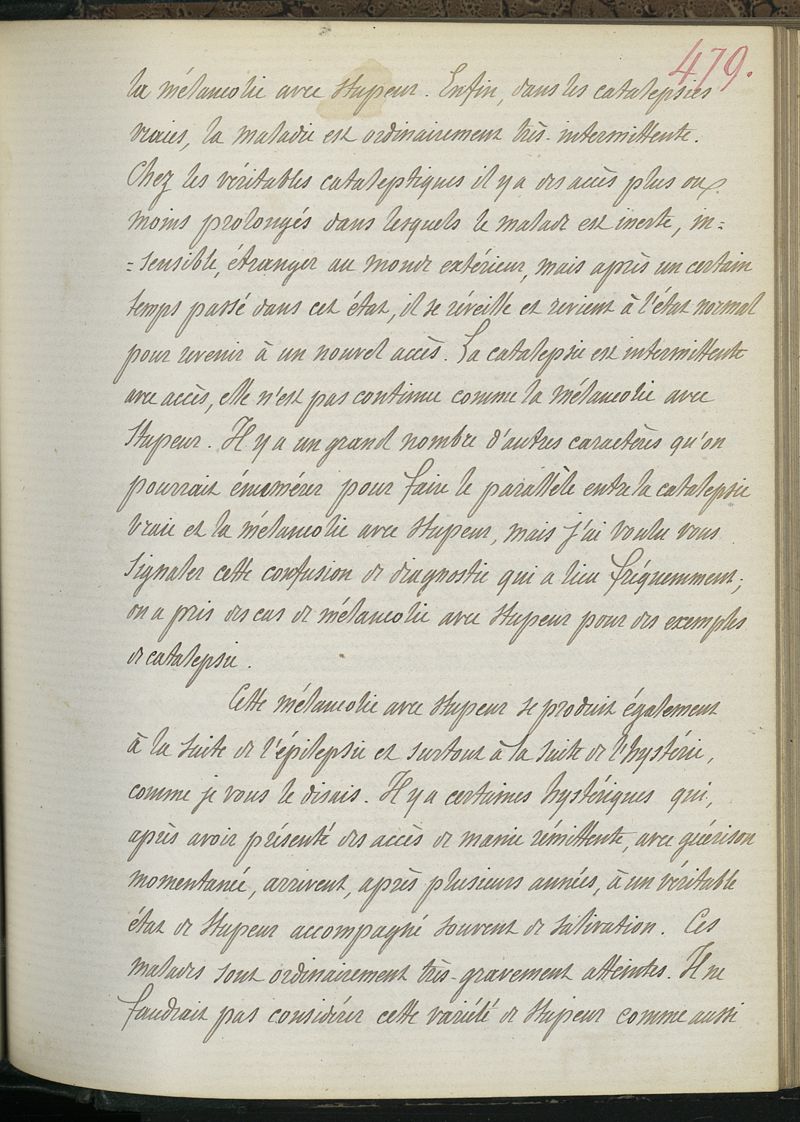 479.
la mélancolie avec stupeur. Enfin, dans les catalepsies
vraies, la maladie est ordinairement très-intermittente.
Chez les véritables cataleptiques il y a des accès plus ou
moins prolongés dans lesquels le malade est inerte, in=
=sensible, étranger au monde extérieur, mais après un certain
temps passé dans cet état, il se réveille et revient à l'état normal
pour revenir à un nouvel accès. La catalepsie est intermittente
avec accès, elle n'est pas continue comme la mélancolie avec
stupeur. Il y a un grand nombre d'autres caractères qu'on
pourrait énumérer pour faire le parallèle entre la catalepsie
vraie et la mélancolie avec stupeur, mais j'ai voulu vous
signaler cette confusion de diagnostic qui a lieu fréquemment;
on a pris des cas de mélancolie avec stupeur pour des exemples
de catalepsie.
Cette mélancolie avec stupeur se produit également
à la suite de l'épilepsie et surtout à la suite de l'hystérie,
comme je vous le disais. Il y a certaines hystériques qui,
après avoir présenté des accès de manie rémittente, avec guérison
momentanée, arrivent, après plusieurs années, à un véritable
état de stupeur accompagné souvent de salivation. Ces
malades sont ordinairement très-gravement atteintes. Il ne
faudrait pas considérer cette variété de stupeur comme aussi